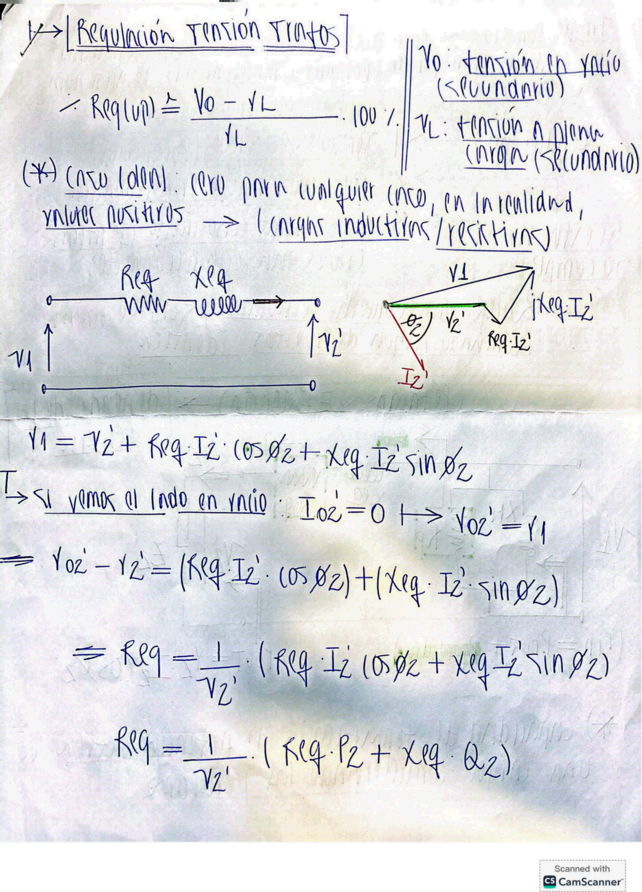 [Regulación Tensión Trafos]
Reg(up) ≜ (V0 - VL) / VL · 100 %
V0: tensión en vacío
(secundario)
VL: tensión a plena
carga (secundario)
(*) Caso ideal: cero para cualquier caso, en la realidad,
valores positivos → (cargas inductivas/resistivas)
Req Xeq
V1 V2'
V1
ϕ2 V2' Xeq·I2'
Req·I2'
I2'
V1 = V2' + Req·I2'·cosϕ2 + Xeq·I2' sinϕ2
→ Si vemos el lado en vacío: I02' = 0 ↦ V02' = V1
= V02' - V2' = (Req·I2'·cosϕ2) + (Xeq·I2'·sinϕ2)
= Reg = 1/V2' · (Req·I2' cosϕ2 + Xeq I2' sinϕ2)
Reg = 1/V2' · (Req·P2 + Xeq·Q2)
Scanned with
CS CamScanner